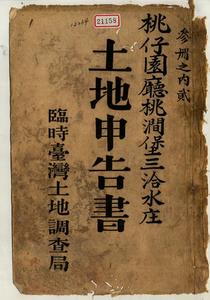 21158
参冊之内貳
桃仔園廳桃澗堡三洽水庄
土地申告書
臨時臺灣土地調查局